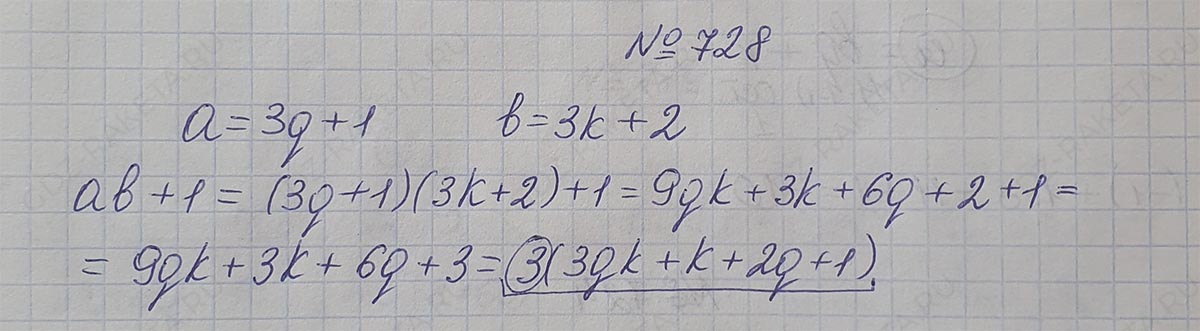 № 728
a = 3q + 1 b = 3k + 2
ab + 1 = (3q + 1)(3k + 2) + 1 = 9qk + 3k + 6q + 2 + 1 =
= 9qk + 3k + 6q + 3 = 3(3qk + k + 2q + 1)